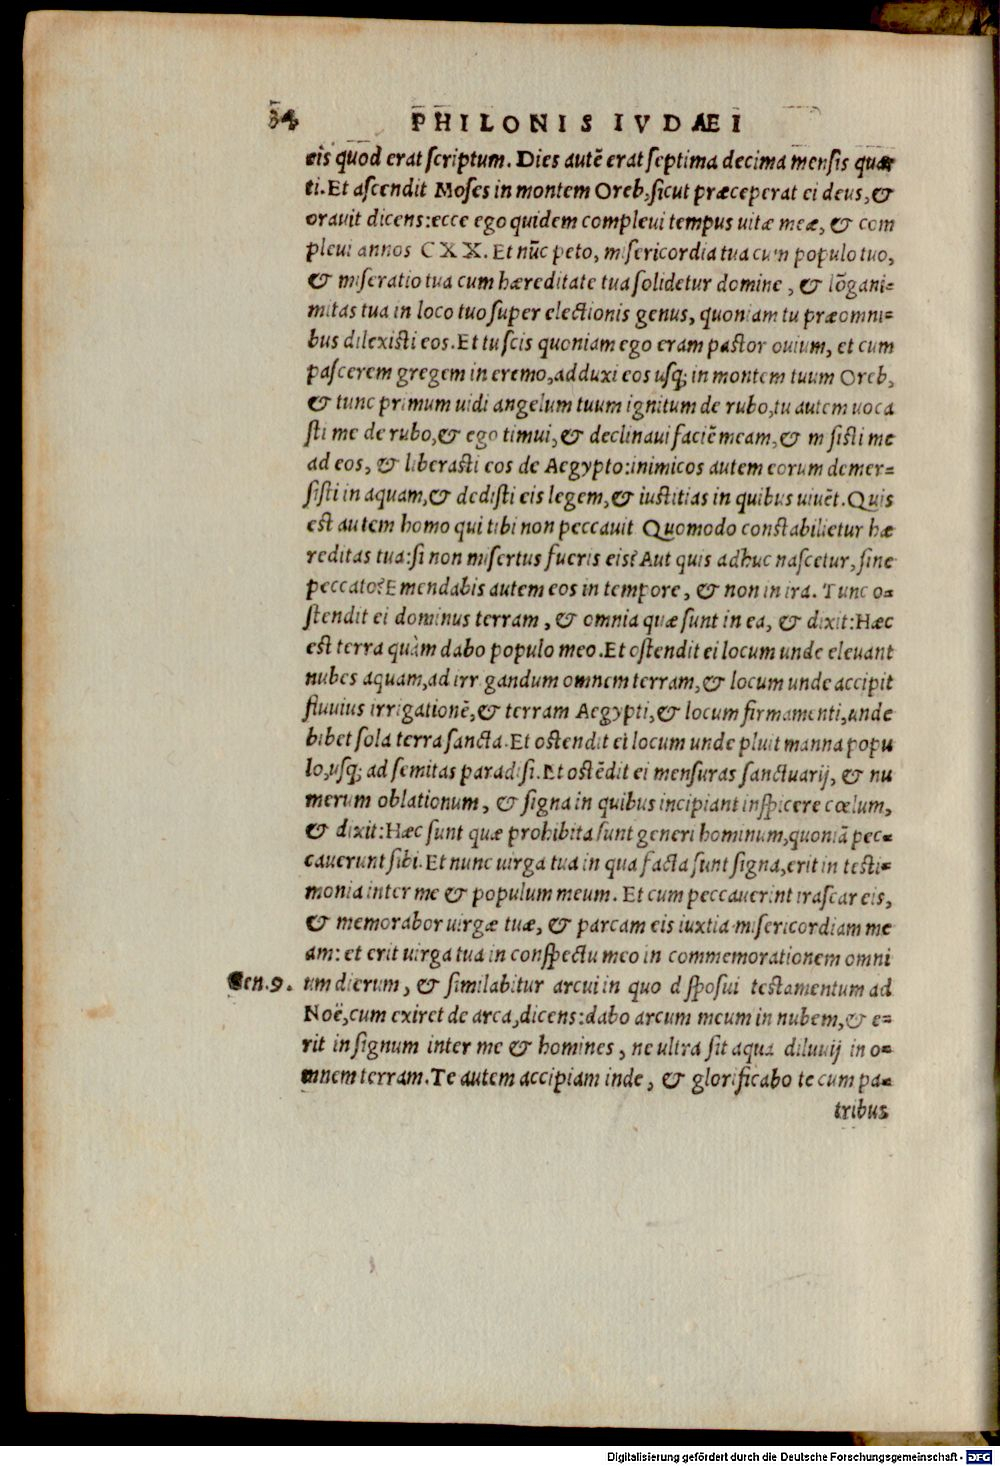 34
PHILONIS IVDAEI
eis quod erat scriptum. Dies autē erat septima decima mensis quar
ti. Et ascendit Moses in montem Oreb, sicut præceperat ei deus, &
orauit dicens: ecce ego quidem compleui tempus uitæ meæ, & com
pleui annos CXX. Et nūc peto, misericordia tua cum populo tuo,
& miseratio tua cum hæreditate tua solidetur domine, & lōgani=
mitas tua in loco tuo super electionis genus, quoniam tu præ omni=
bus dilexisti eos. Et tu scis quoniam ego eram pastor ouium, et cum
pascerem gregem in eremo, adduxi eos usq; in montem tuum Oreb,
& tunc primum uidi angelum tuum ignitum de rubo, tu autem uoca
sti me de rubo, & ego timui, & declinaui faciē meam, & misisti me
ad eos, & liberasti eos de Aegypto: inimicos autem eorum demer=
sisti in aquam, & dedisti eis legem, & iustitias in quibus uiuēt. Quis
est autem homo qui tibi non peccauit Quomodo constabilietur hæ
reditas tua: si non misertus fueris eis? Aut quis adhuc nascetur, sine
peccato? Emendabis autem eos in tempore, & non in ira. Tunc o=
stendit ei dominus terram, & omnia quæ sunt in ea, & dixit: Hæc
est terra quàm dabo populo meo. Et ostendit ei locum unde eleuant
nubes aquam, ad irrigandum omnem terram, & locum unde accipit
fluuius irrigationē, & terram Aegypti, & locum firmamenti, unde
bibet sola terra sancta. Et ostendit ei locum unde pluit manna popu
lo, usq; ad semitas paradisi. Et ostēdit ei mensuras sanctuarij, & nu
merum oblationum, & signa in quibus incipiant inspicere cœlum,
& dixit: Hæc sunt quæ prohibita sunt generi hominum, quoniā pec=
cauerunt sibi. Et nunc uirga tua in qua facta sunt signa, erit in testi=
monia inter me & populum meum. Et cum peccauerint irascar eis,
& memorabor uirgæ tuæ, & parcam eis iuxtia misericordiam me
am: et erit uirga tua in conspectu meo in commemorationem omni
Gen. 9. um dierum, & similabitur arcui in quo disposui testamentum ad
Noë, cum exiret de arca, dicens: dabo arcum meum in nubem, & e=
rit in signum inter me & homines, ne ultra sit aqua diluuij in o=
mnem terram. Te autem accipiam inde, & glorificabo te cum pa=
tribus
Digitalisierung gefördert durch die Deutsche Forschungsgemeinschaft - DFG